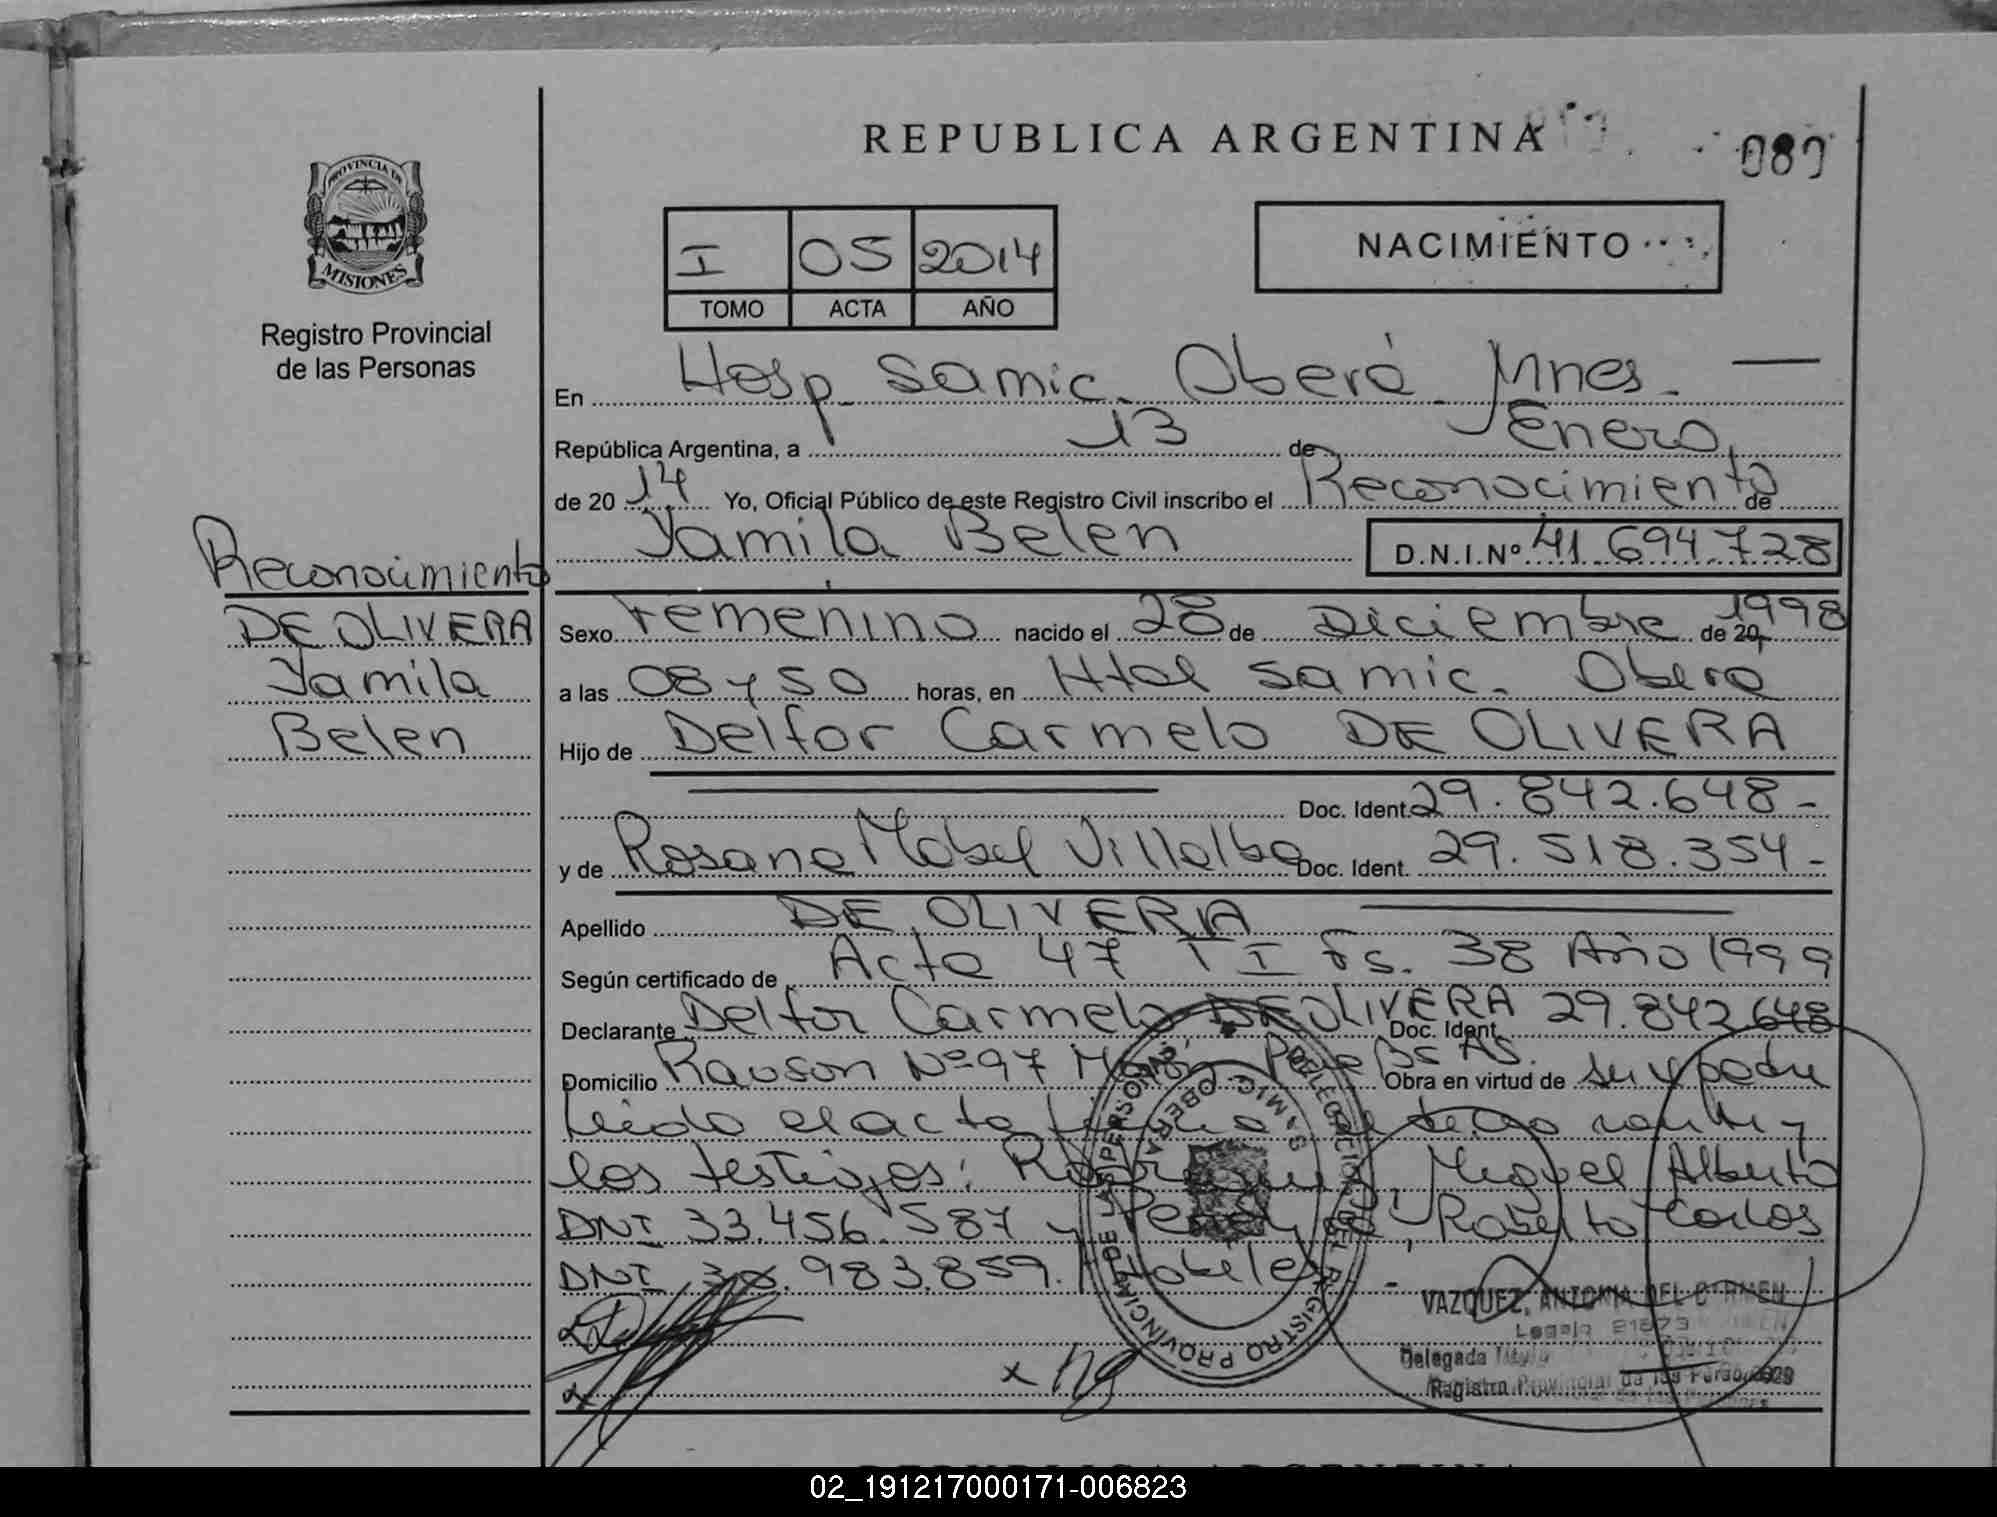 REPUBLICA ARGENTINA
080
PROVINCIA DE
MISIONES
Registro Provincial
de las Personas
I 05 2014
TOMO ACTA AÑO
NACIMIENTO
En Hosp. Samic. Oberá Mnes.
República Argentina, a 13 de Enero
de 20 14 Yo, Oficial Público de este Registro Civil inscribo el Reconocimiento de
Yamila Belen D.N.I.Nº 41.694.728
Reconocimiento
DE OLIVERA
Yamila
Belen
Sexo Femenino nacido el 28 de Diciembre de 20 1998
a las 08 y 50 horas, en Htal Samic. Obera
Hijo de Delfor Carmelo DE OLIVERA
Doc. Ident. 29.842.648-
y de Rosana Mabel Villalba Doc. Ident. 29.518.354-
Apellido DE OLIVERA
Según certificado de Acta 47 T I Fs. 38 Año 1999
Declarante Delfor Carmelo DE OLIVERA Doc. Ident. 29.842.648
Domicilio Rauson Nº 97 Bs As. Obra en virtud de su padre
Leido el acta
los testigos: Miguel Alberto
DNI 33.456.587 y Roberto Carlos
DNI 983.859.
DELEGACION DEL REGISTRO PROVINCIAL DE LAS PERSONAS
SAMIC. OBERA
VAZQUEZ, ANTONIA DEL CARMEN
Legajo
Delegada
Registro Provincial de las Personas
REPUBLICA ARGENTINA
02_191217000171-006823